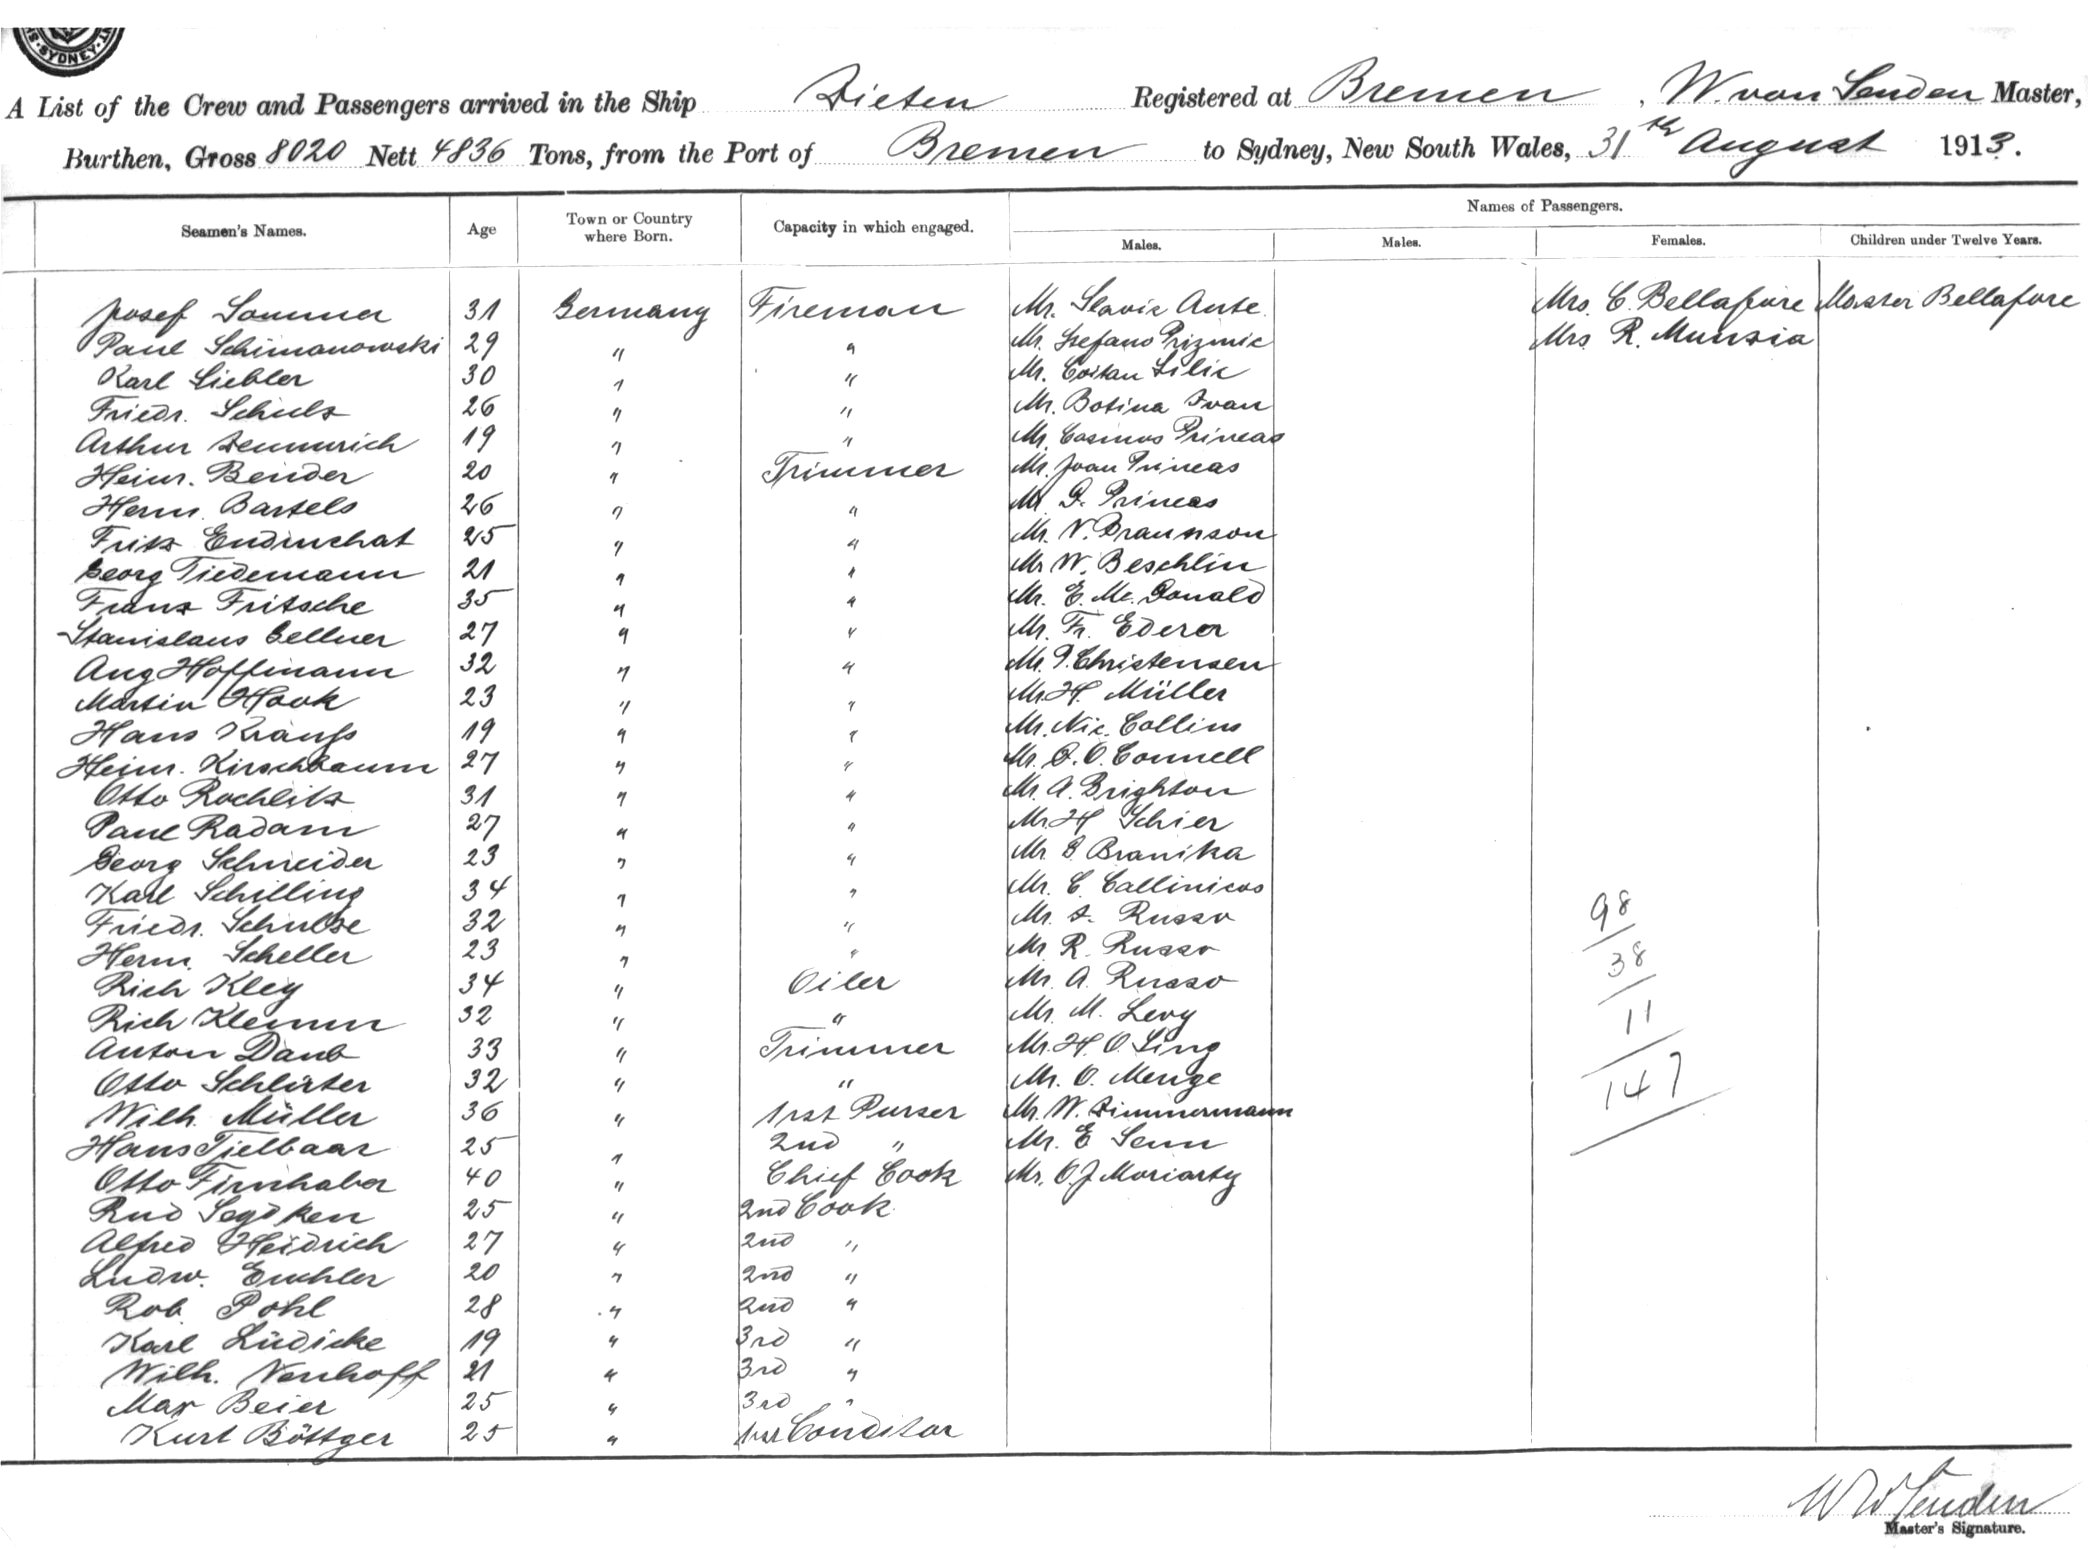 SYDNEY
A List of the Crew and Passengers arrived in the Ship Zieten Registered at Bremen, W. von Senden Master,
Burthen, Gross 8020 Nett 4836 Tons, from the Port of Bremen to Sydney, New South Wales, 31th August 1913.
Names of Passengers.
Seamen's Names. Age Town or Country where Born. Capacity in which engaged. Males. Males. Females. Children under Twelve Years.
Josef Sommer 31 Germany Fireman Mr. Slavic Ante. Mrs. C. Bellafiore Master Bellafiore
Paul Schimanowski 29 " " Mr. Stefano Prizmic Mrs R. Munzia
Karl Liebler 30 " " Mr. Lilic
Friedr. Schulz 26 " " Mr. Botina Ivan
Arthur 19 " " Mr. Cosmos Prineas
Heinr. Bender 20 " Trimmer Mr. Joan Prineas
Herm. Bartels 26 " " Mr. D. Prineas
Fritz 25 " " Mr. N. Braunson
Georg Tiedemann 21 " " Mr W. Beschlin
Franz Fritsche 35 " " Mr. E. Mc. Donald
Stanislaus Gellner 27 " " Mr. Fr. Ederer
Aug Hoffmann 32 " " Mr. P. Christensen
Martin Hook 23 " " Mr. H. Müller
Hans Krauß 19 " " Mr. Nic. Collins
Heinr. Kirschbaum 27 " " Mr. O. Connell
Otto Rochlitz 31 " " Mr. A. Brighton
Paul Radam 27 " " Mr. H Schier
Georg Schneider 23 " " Mr Branika
Karl Schilling 34 " " Mr. C. Callinicos
Friedr. Schulze 32 " " Mr. Russo 98
Herm. Scheller 23 " " Mr. R. Russo
Rich Kley 34 " Oiler Mr. A. Russo 38
Rich Klemm 32 " " Mr. M. Levy 11
Anton Daub 33 " Trimmer Mr. H. O. Ling
Otto Schlüter 32 " " Mr. O. Menge 147
Wilh. Müller 36 " 1rst Purser Mr. W. Zimmermann
Hans Tjelbaar 25 " 2nd " Mr. E Senn
Otto Firnhaber 40 " Chief Cook Mr. O. J Moriarty
Rud 25 " 2nd Cook
Alfred Heidrich 27 " 2nd "
Ludw. Euchler 20 " 2nd "
Rob. Pohl 28 " 2nd "
Karl Lüdicke 19 " 3rd "
Wilh. Nenhoff 21 " 3rd "
Max Beier 25 " 3rd "
Kurt Böttger 25 " 1rst Conditor
W v Senden
Master's Signature.